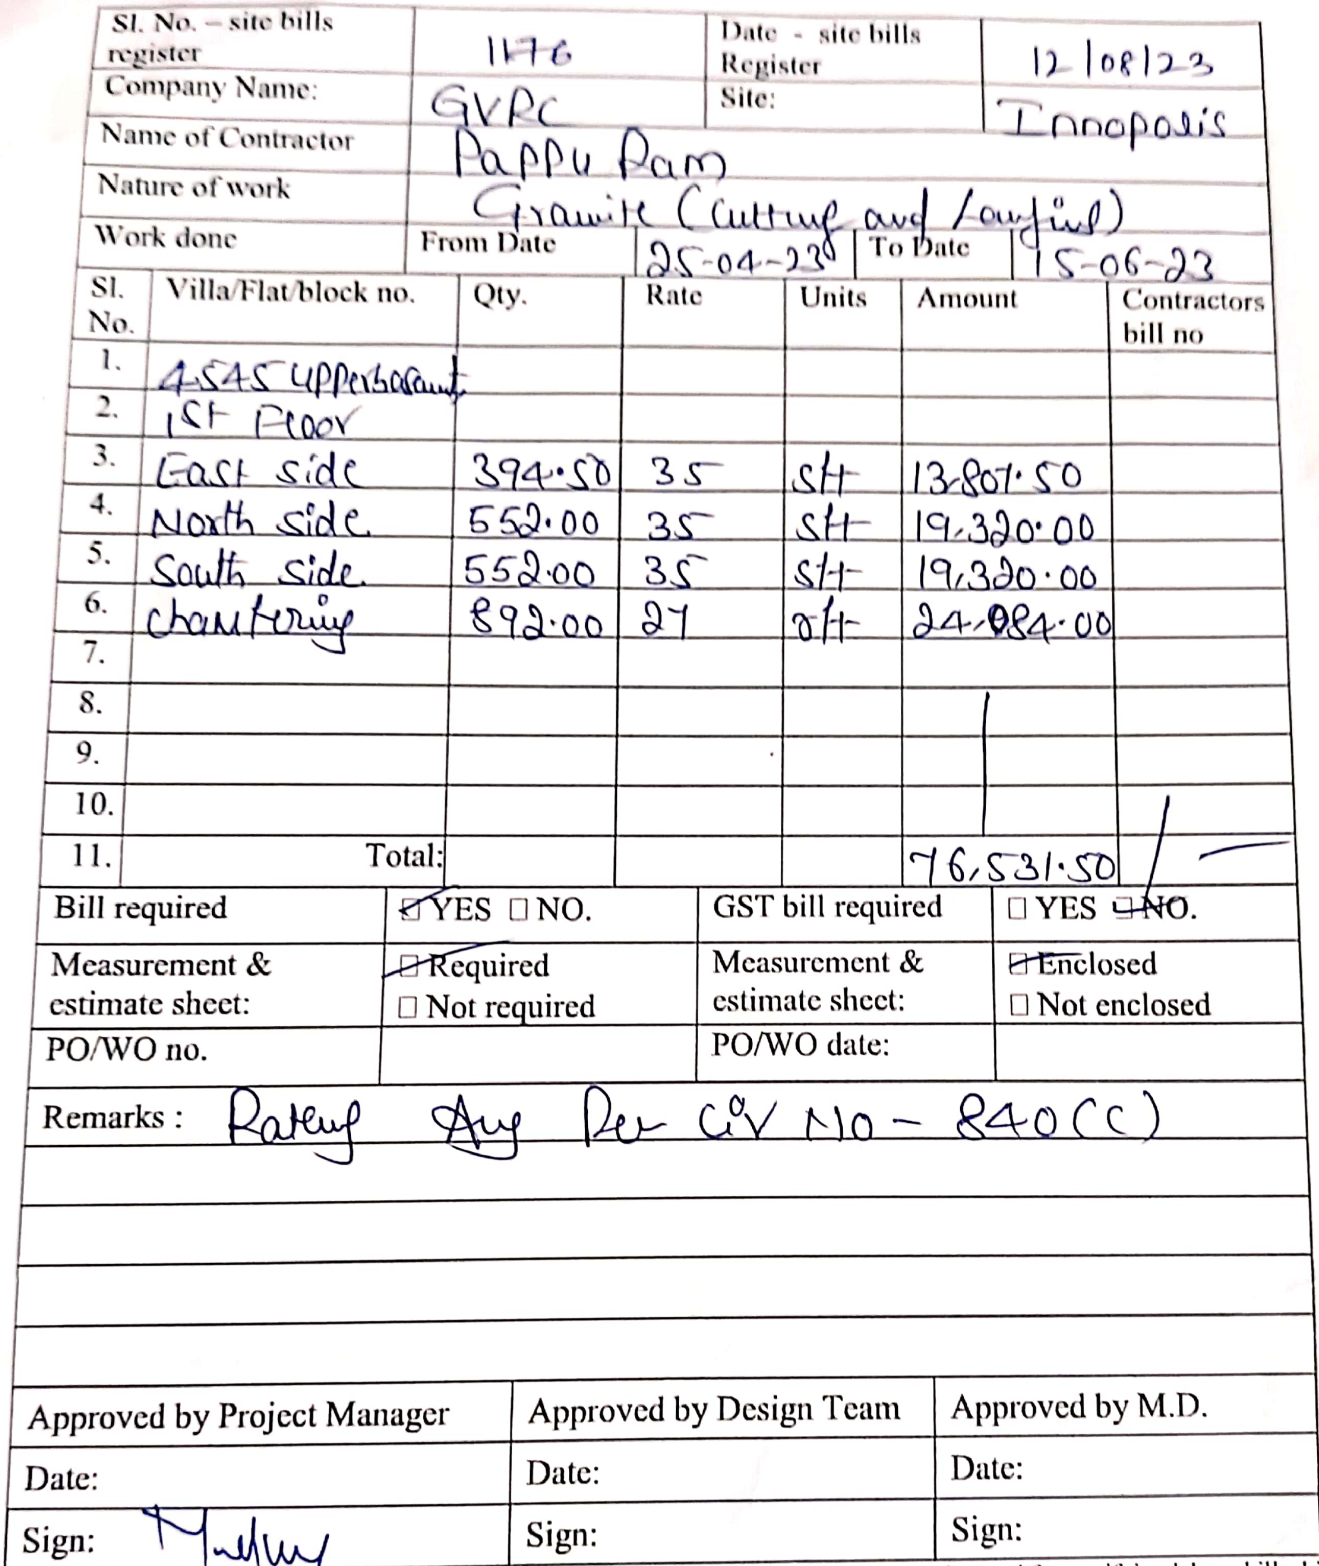 Sl. No. – site bills register 1176 Date - site bills Register 12/08/23
Company Name: GVRC Site: Innopolis
Name of Contractor Pappu Ram
Nature of work Granite (Cutting and Laying)
Work done From Date 25-04-23 To Date 15-06-23
Sl. No. Villa/Flat/block no. Qty. Rate Units Amount Contractors bill no
1. 4545 upperbasamt
2. 1st Floor
3. East side 394.50 35 sft 13,807.50
4. North side 552.00 35 sft 19,320.00
5. South side 552.00 35 sft 19,320.00
6. chamfering 892.00 27 rft 24,084.00
7.
8.
9.
10.
11. Total: 76,531.50
Bill required YES NO. GST bill required YES NO.
Measurement & estimate sheet: Required Not required Measurement & estimate sheet: Enclosed Not enclosed
PO/WO no. PO/WO date:
Remarks : Per No - 840(C)
Approved by Project Manager Approved by Design Team Approved by M.D.
Date: Date: Date:
Sign: Sign: Sign: